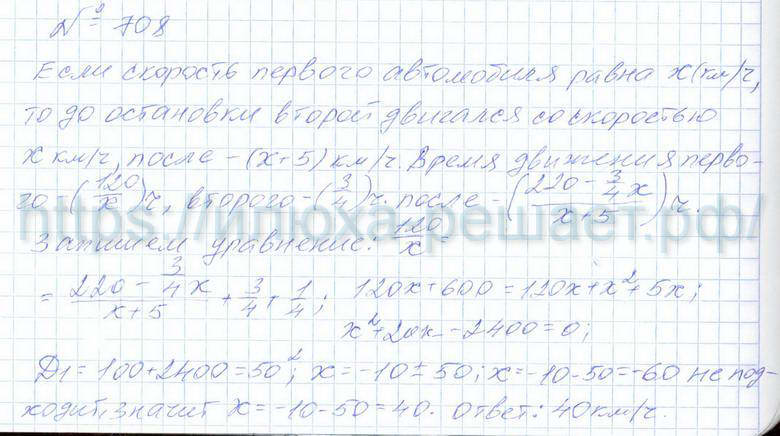 № 708
Если скорость первого автомобиля равна x (км/ч,
то до остановки второй двигался со скоростью
x км/ч, после – (x+5) км/ч. Время движения перво-
го – (120/x) ч, второго – (3/4) ч. после – (220 – 3/4 x / x+5) ч.
https://илюхарешает.рф/
Запишем уравнение: 120/x =
= 220 – 3/4 x / x+5 + 3/4 + 1/4; 120x+600=120x+x²+5x;
x²+20x–2400=0;
D₁=100+2400=50²; x=–10±50; x=–10-50=–60 не под-
ходит, значит x=–10-50=40. Ответ: 40км/ч.